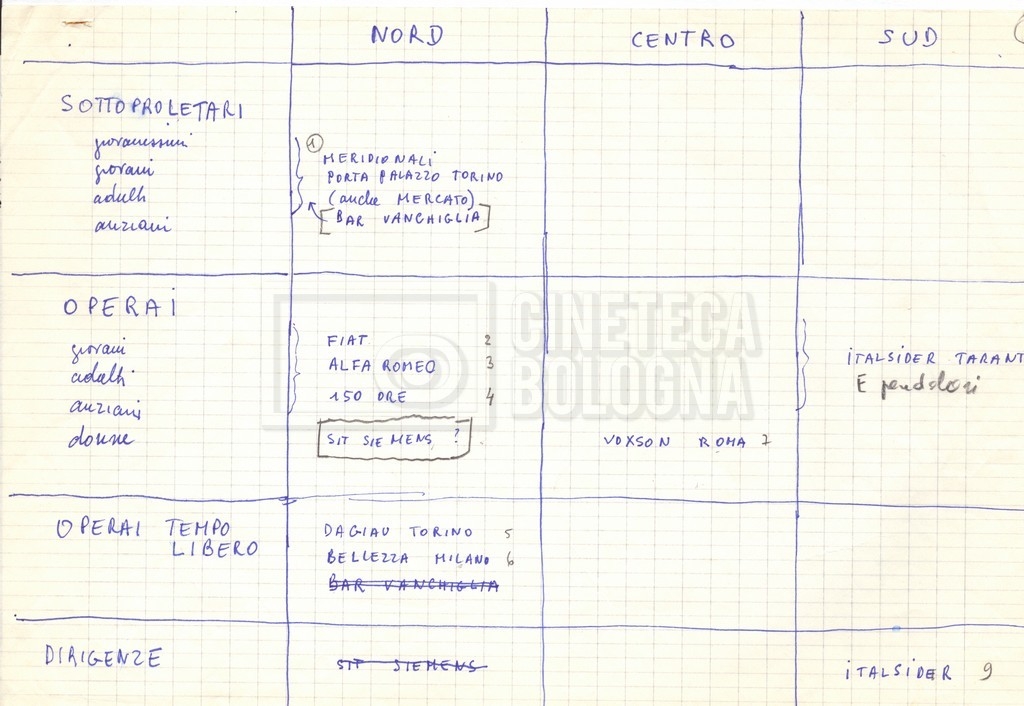 NORD CENTRO SUD
SOTTOPROLETARI
giovanissimi
giovani
adulti
anziani
1
MERIDIONALI
PORTA PALAZZO TORINO
(anche MERCATO)
[BAR VANCHIGLIA]
OPERAI
giovani
adulti
anziani
donne
FIAT 2
ALFA ROMEO 3
150 ORE 4
SIT SIEMENS ?
VOXSON ROMA 7
ITALSIDER TARANT
E pendolari
OPERAI TEMPO
LIBERO
DAGIAU TORINO 5
BELLEZZA MILANO 6
BAR VANCHIGLIA
DIRIGENZE
SIT SIEMENS
ITALSIDER 9
CINETECA
BOLOGNA